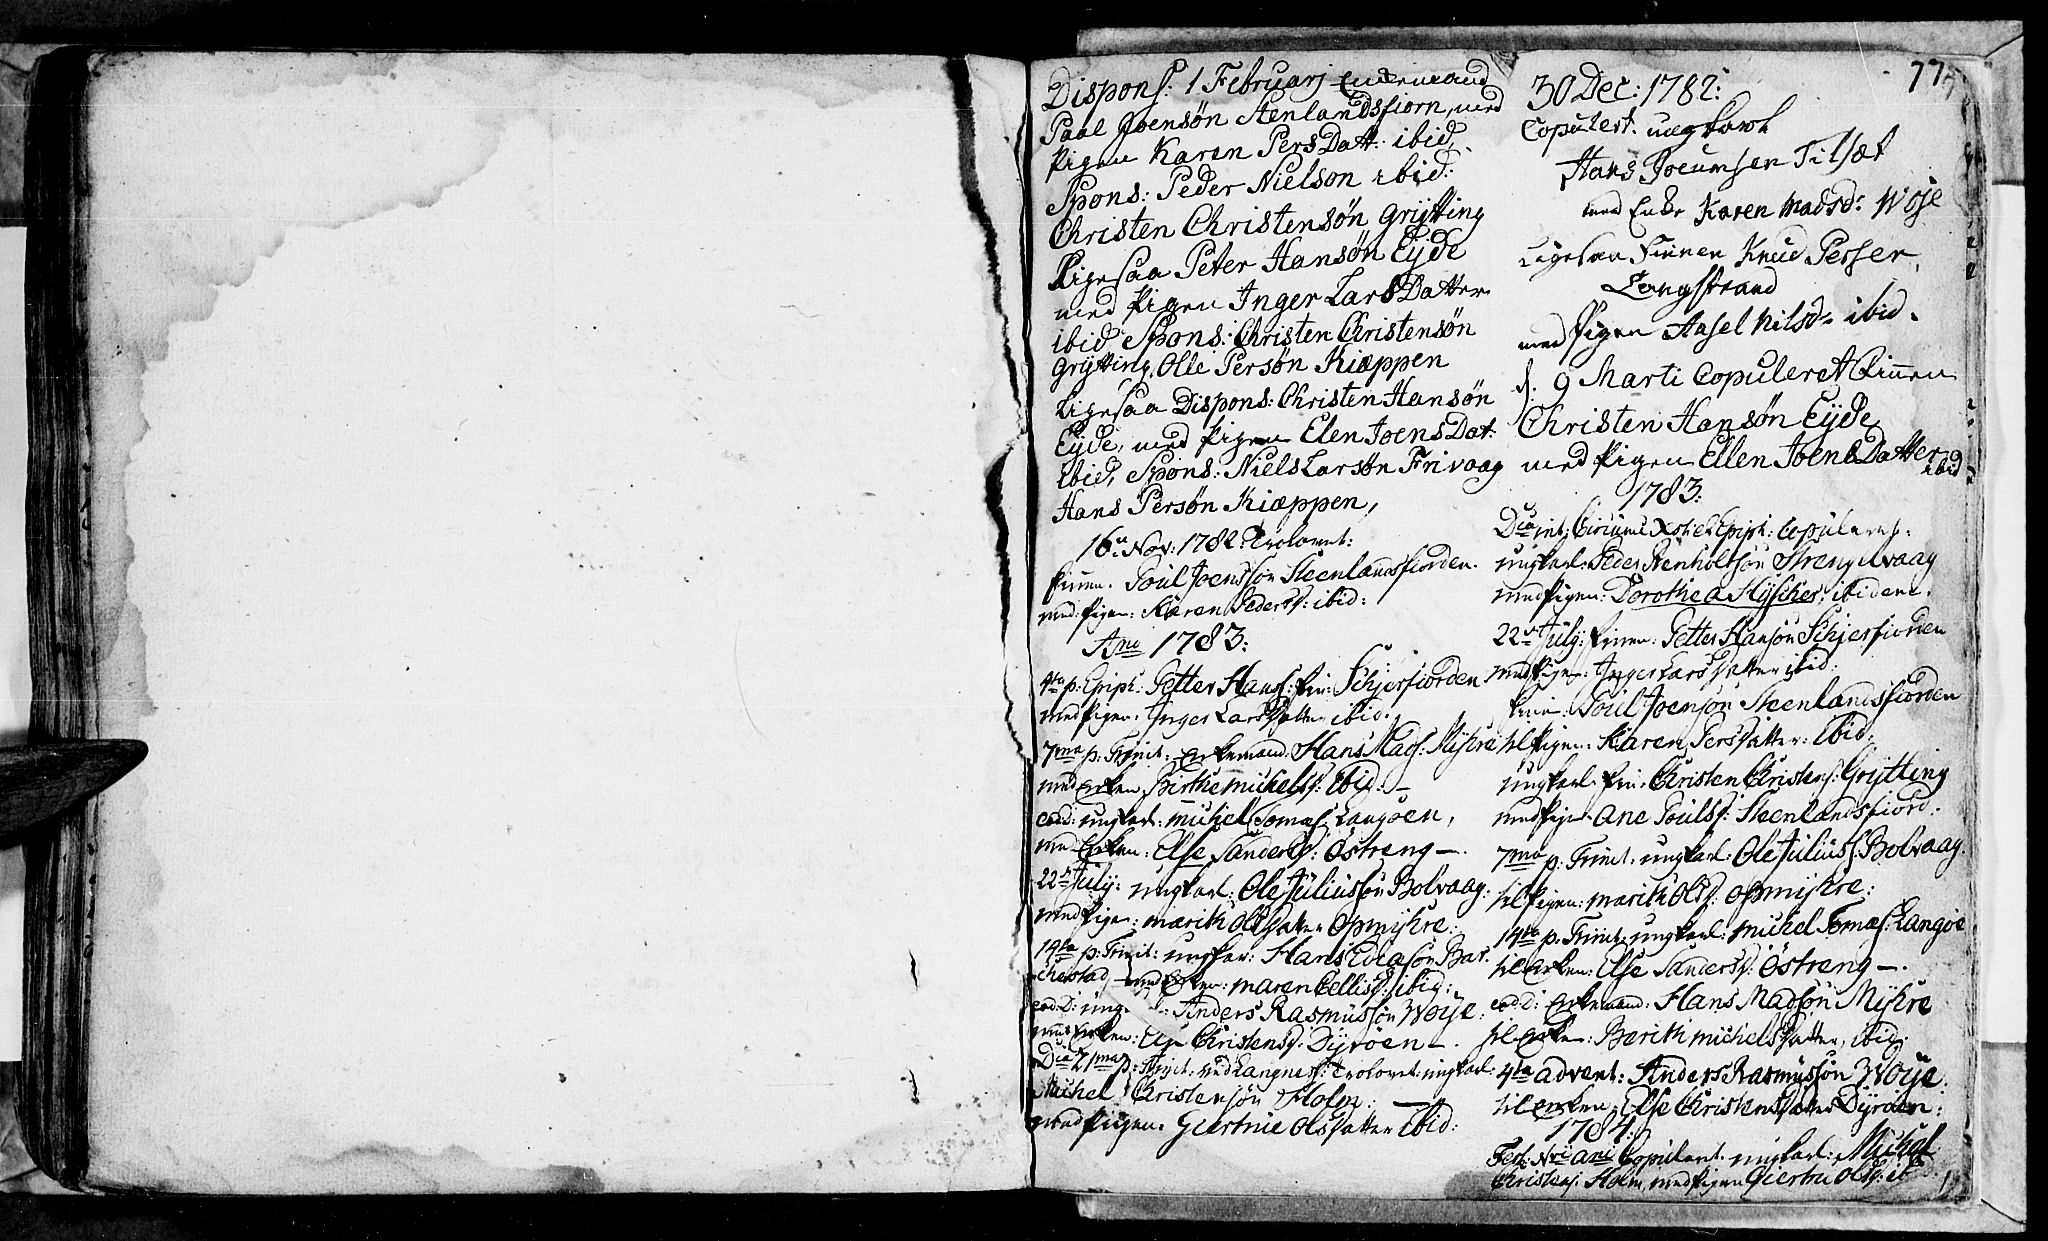 77
Dispons: 1 Februarj Enckemand
Paal Joensøn Stenlandsfiorn, med
Pigen Karen Pers Datt: ibid,
Spons: Peder Nielson ibid:
Christen Christensøn Grijtting
Ligesaa Peter Hansøn Eyde
med Pigen Inger Lars Datter
ibid Spons: Christen Christensøn
Grijtting, Olle Persøn Kiæppen
Ligesaa Dispons: Christen Hansøn
Eyde, med Pigen Elen Joens Dat:
ibid, Spons: Niels Larsøn Frivaag
Hans Persøn Kiæppen,
16de Nov: 1782: Trolovet:
finnen. Poul Joenssøn Steenlandsfiorden.
med Pigen: Karen Pedersd: ibid:
Ano 1783:
4ta p: Epiph: Petter Hans: fin: Schjerfiorden
med Pigen. Inger Larsdatter ibid:
7ma p: Trinit: Enkemand: Hans Mads: Myhre
med Enken Birthe Michelsd: ibid: —
eod: ungkarl: Michel Tomas: Langøen,
med Enken: Else Sandersd: Østreng —.
22de July: ungkarl: Ole Juliussøn Bolvaag:
med Pige: Marith Olsdatter Opmyhre:
14ta p: Trinit: ungkar: Hans Eliasøn Bar-
chestad, med Enken: Maren Ellisd: ibid:
eod: D: ungk: Anders Rasmussøn Woye:
med Enken: Else Christensd: Dyrøen —.
Dca 21ma p: Trinit: ved Langnes: Trolovet: ungkarl:
Michel Christensøn Holm: —
med Pigen. Giertrue Olsdatter ibid:
30 Dec: 1782:
Copulert: ungkarl
Hans Jocumsen Tilset
med Enke Karen Madsd: Woje
Ligesaa Finnen Knud Persen,
Langstrand
med Pigen Aasel Nilsd: ibid.
d: 9 Marti Copuleret Finnen
Christen Hansøn Eyde,
med Pigen Ellen Joens Datter
ibid
1783:
Dca int: Circumc: Xsti et Epiph: Copuleret:
ungkarl: Peder Renholtsøn Strengelvaag
med Pigen: Dorothea Hyscher: ibidem.
22de July: finnen: Petter Hansøn Schjerfiorden
med Pigen: Inger Larsdatter ibid:
finn: Poul Joensøn Steenlandsfiorden
til Pigen: Karen Persdatter: ibid:
ungkarl: fin: Christen Christens: Grytting
med Pigen. Ane Poulsd: Steenlandsfiord:
7ma p: Trinit: ungkarl: Ole Julius: Bolvaag.
til Pigen: Marith Olsd: Opmyhre:
14ta p: Trinit: ungkarl: Michel Tomas: Langøe
til Enken: Else Sandersd: Østreng —.
eod D: Enkemand: Hans Madsøn Myhre
til Enke: Berith Michelsdatter, ibid:
4ta Advent: Anders Rasmussøn Woye:
til Enken: Else Christensdatter Dyrøen:
1784:
Fest: Nvi ani Copulert: ungkarl: Michel
Christens: Holm, med Pigen Giertru Olsd: ib